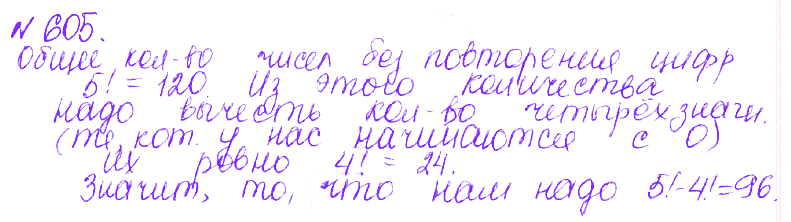 № 605.
Общее кол-во чисел без повторения цифр
5! = 120. Из этого количества
надо вычесть кол-во четырёхзначн.
(те, кот. у нас начинаются с 0)
Их равно 4! = 24.
Значит, то, что нам надо 5!-4!=96.